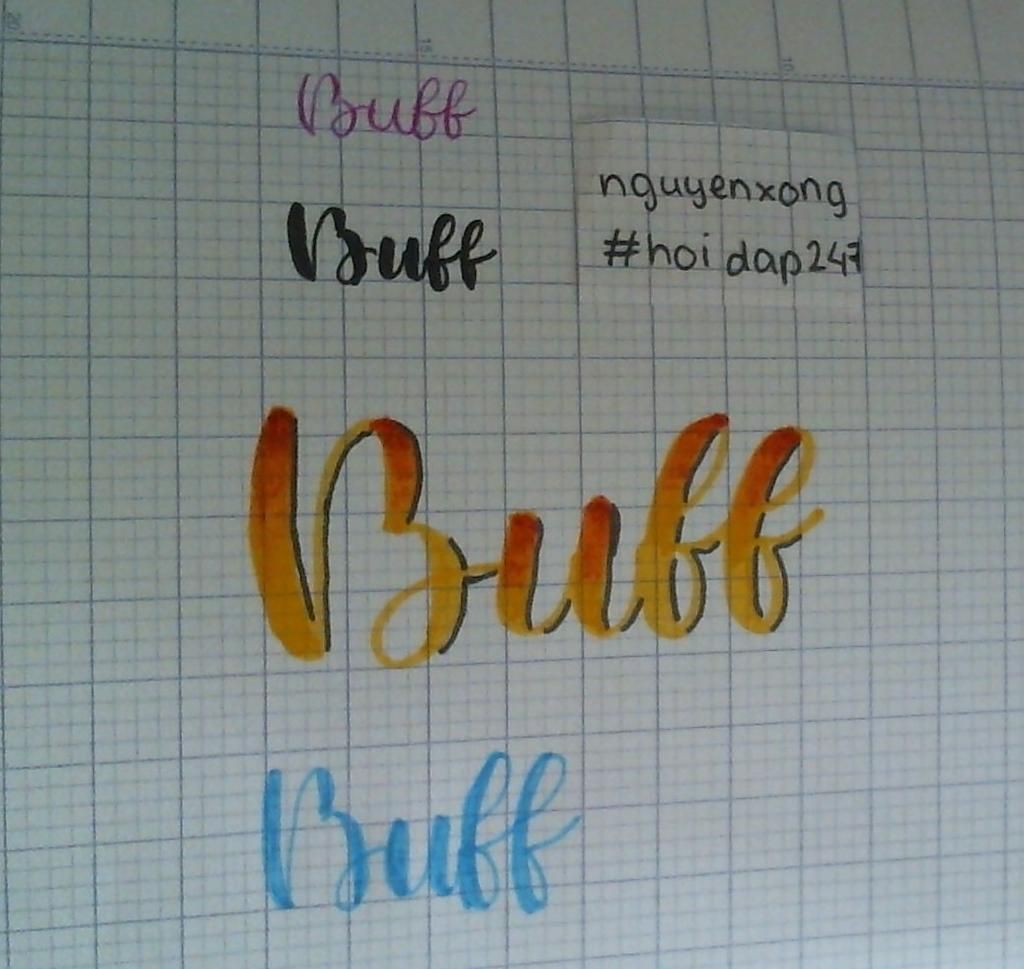 Buff
nguyenxong
Buff
#hoidap247
Buff
Buff